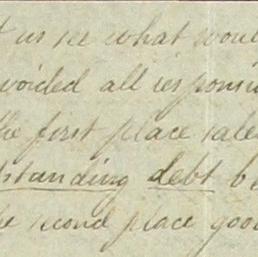 t us see what wou
voided all responsi
the first place tale
tstanding debt b
he second place goo